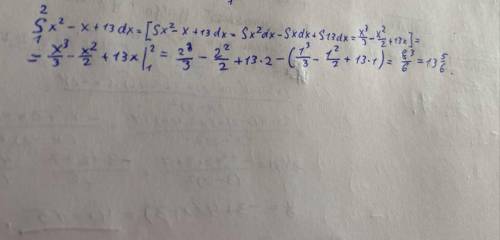 ∫₁² x² - x + 13 dx = [∫x² - x + 13 dx = ∫x² dx - ∫x dx + ∫13 dx = x³/3 - x²/2 + 13x] =
= x³/3 - x²/2 + 13x |₁² = 2³/3 - 2²/2 + 13·2 - (1³/3 - 1²/2 + 13·1) = 83/6 = 13 5/6.